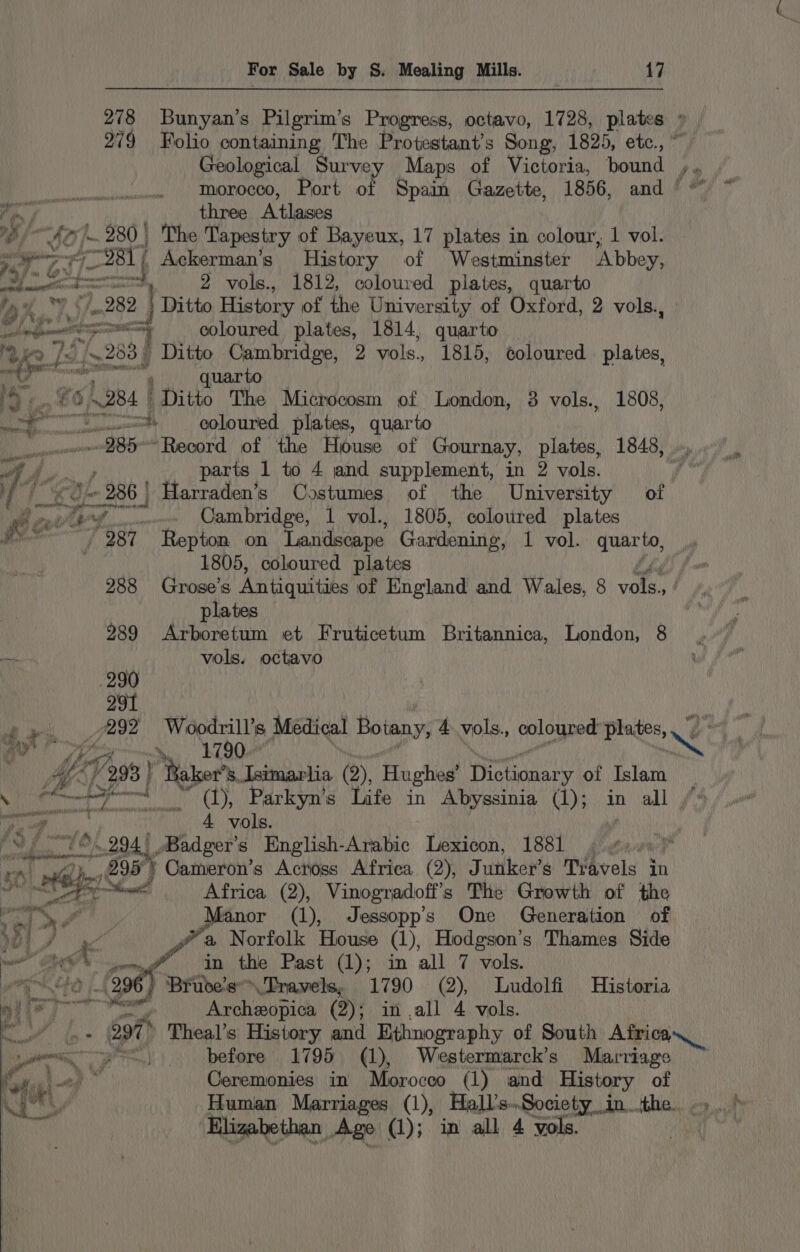 For Sale by S. Mealing Mills. 17
278 Bunyan's Pilgrim's Progress, octavo, 1728, plates
279 Folio containing The Protestant's Song, 1825, etc.,
Geological Survey Maps of Victoria, bound
morocco, Port of Spain Gazette, 1856, and
three Atlases
280 The Tapestry of Bayeux, 17 plates in colour, 1 vol.
281 Ackerman's History of Westminster Abbey,
2 vols., 1812, coloured plates, quarto
282 Ditto History of the University of Oxford, 2 vols.,
coloured plates, 1814, quarto
283 Ditto Cambridge, 2 vols., 1815, coloured plates,
quarto
284 Ditto The Microcosm of London, 3 vols., 1808,
coloured plates, quarto
285 Record of the House of Gournay, plates, 1848,
parts 1 to 4 and supplement, in 2 vols.
286 Harraden's Costumes of the University of
Cambridge, 1 vol., 1805, coloured plates
287 Repton on Landscape Gardening, 1 vol. quarto,
1805, coloured plates
288 Grose's Antiquities of England and Wales, 8 vols.,
plates
289 Arboretum et Fruticetum Britannica, London, 8
vols. octavo
290
291
292 Woodrill's Medical Botany, 4 vols., coloured plates,
1790
293 Baker's Isimarlia (2), Hughes' Dictionary of Islam
(1), Parkyn's Life in Abyssinia (1); in all
4 vols.
294 Badger's English-Arabic Lexicon, 1881
295 Cameron's Across Africa (2), Junker's Travels in
Africa (2), Vinogradoff's The Growth of the
Manor (1), Jessopp's One Generation of
a Norfolk House (1), Hodgson's Thames Side
in the Past (1); in all 7 vols.
296 Bruce's Travels, 1790 (2), Ludolfi Historia
Archæopica (2); in all 4 vols.
297 Theal's History and Ethnography of South Africa
before 1795 (1), Westermarck's Marriage
Ceremonies in Morocco (1) and History of
Human Marriages (1), Hall's Society in the
Elizabethan Age (1); in all 4 vols.